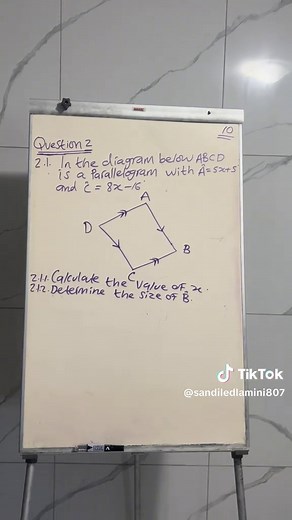 10
Question 2
2.1. In the diagram below ABCD
is a Parallelogram with A=5x+5
and ĉ = 8x-16
A
D
B
C
2.1.1. Calculate the value of x.
2.1.2. Determine the size of B̂.
TikTok
@sandiledlamini807